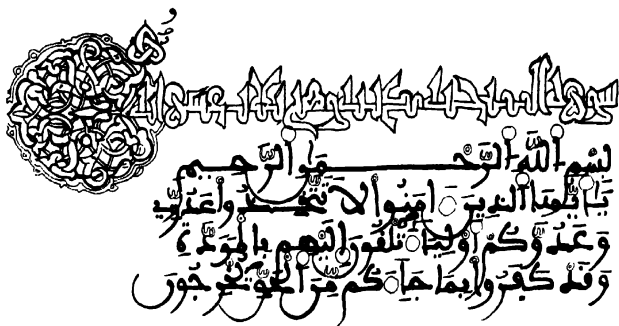 سورة الممتحنة وهي عشرة اية
بِسْمِ اللَّهِ الرَّحْمَٰنِ الرَّحِيمِ
يَٰأَيُّهَا الَّذِينَ ءَامَنُوا لَا تَتَّخِذُوا عَدُوِّي
وَعَدُوَّكُمْ أَوْلِيَاءَ تُلْقُونَ إِلَيْهِم بِالْمَوَدَّةِ
وَقَدْ كَفَرُوا بِمَا جَاءَكُم مِّنَ الْحَقِّ يُخْرِجُونَ